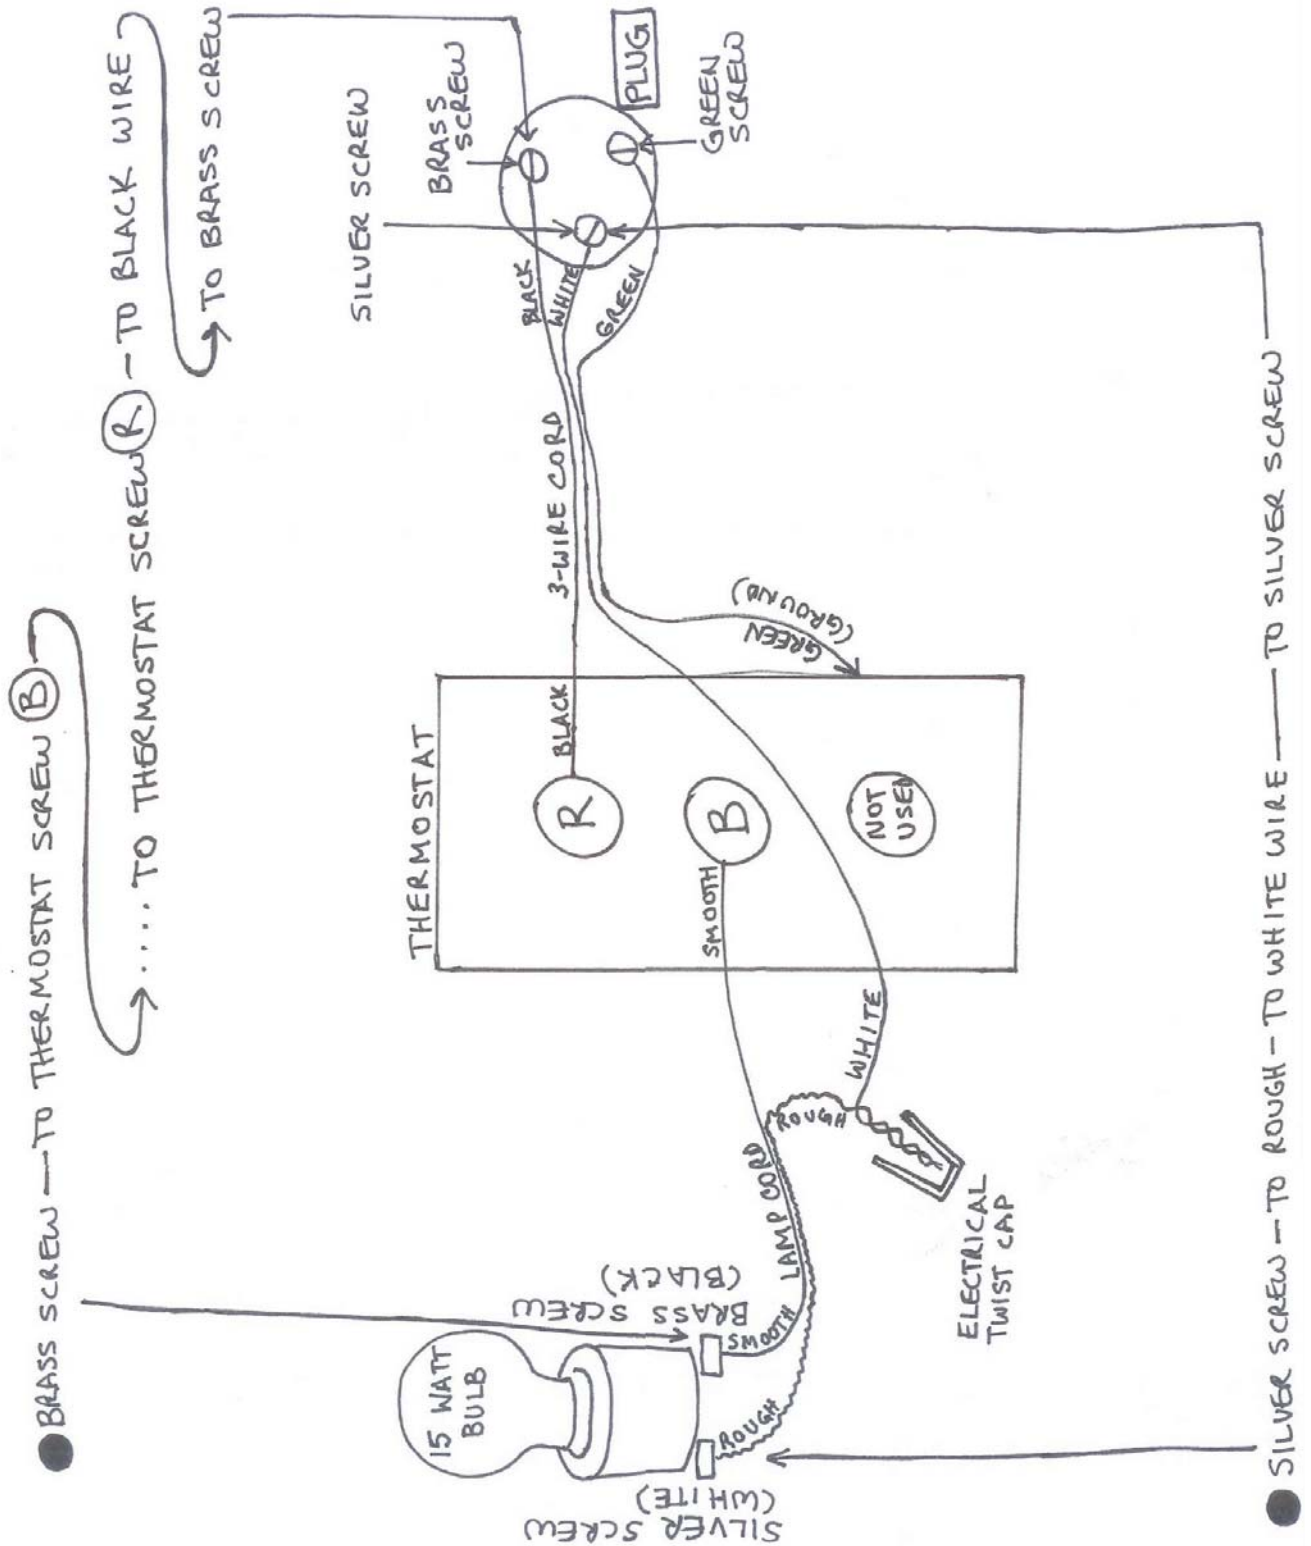 ● BRASS SCREW — TO THERMOSTAT SCREW (B)
..... TO THERMOSTAT SCREW (R) — TO BLACK WIRE
TO BRASS SCREW
SILVER SCREW
BRASS
SCREW
PLUG
GREEN
SCREW
BLACK
WHITE
GREEN
3-WIRE CORD
GREEN
(GROUND)
THERMOSTAT
BLACK
R
B
NOT
USED
SMOOTH
WHITE
ROUGH
LAMP CORD
ELECTRICAL
TWIST CAP
15 WATT
BULB
BRASS SCREW
(BLACK)
SMOOTH
ROUGH
SILVER SCREW
(WHITE)
● SILVER SCREW — TO ROUGH — TO WHITE WIRE — TO SILVER SCREW